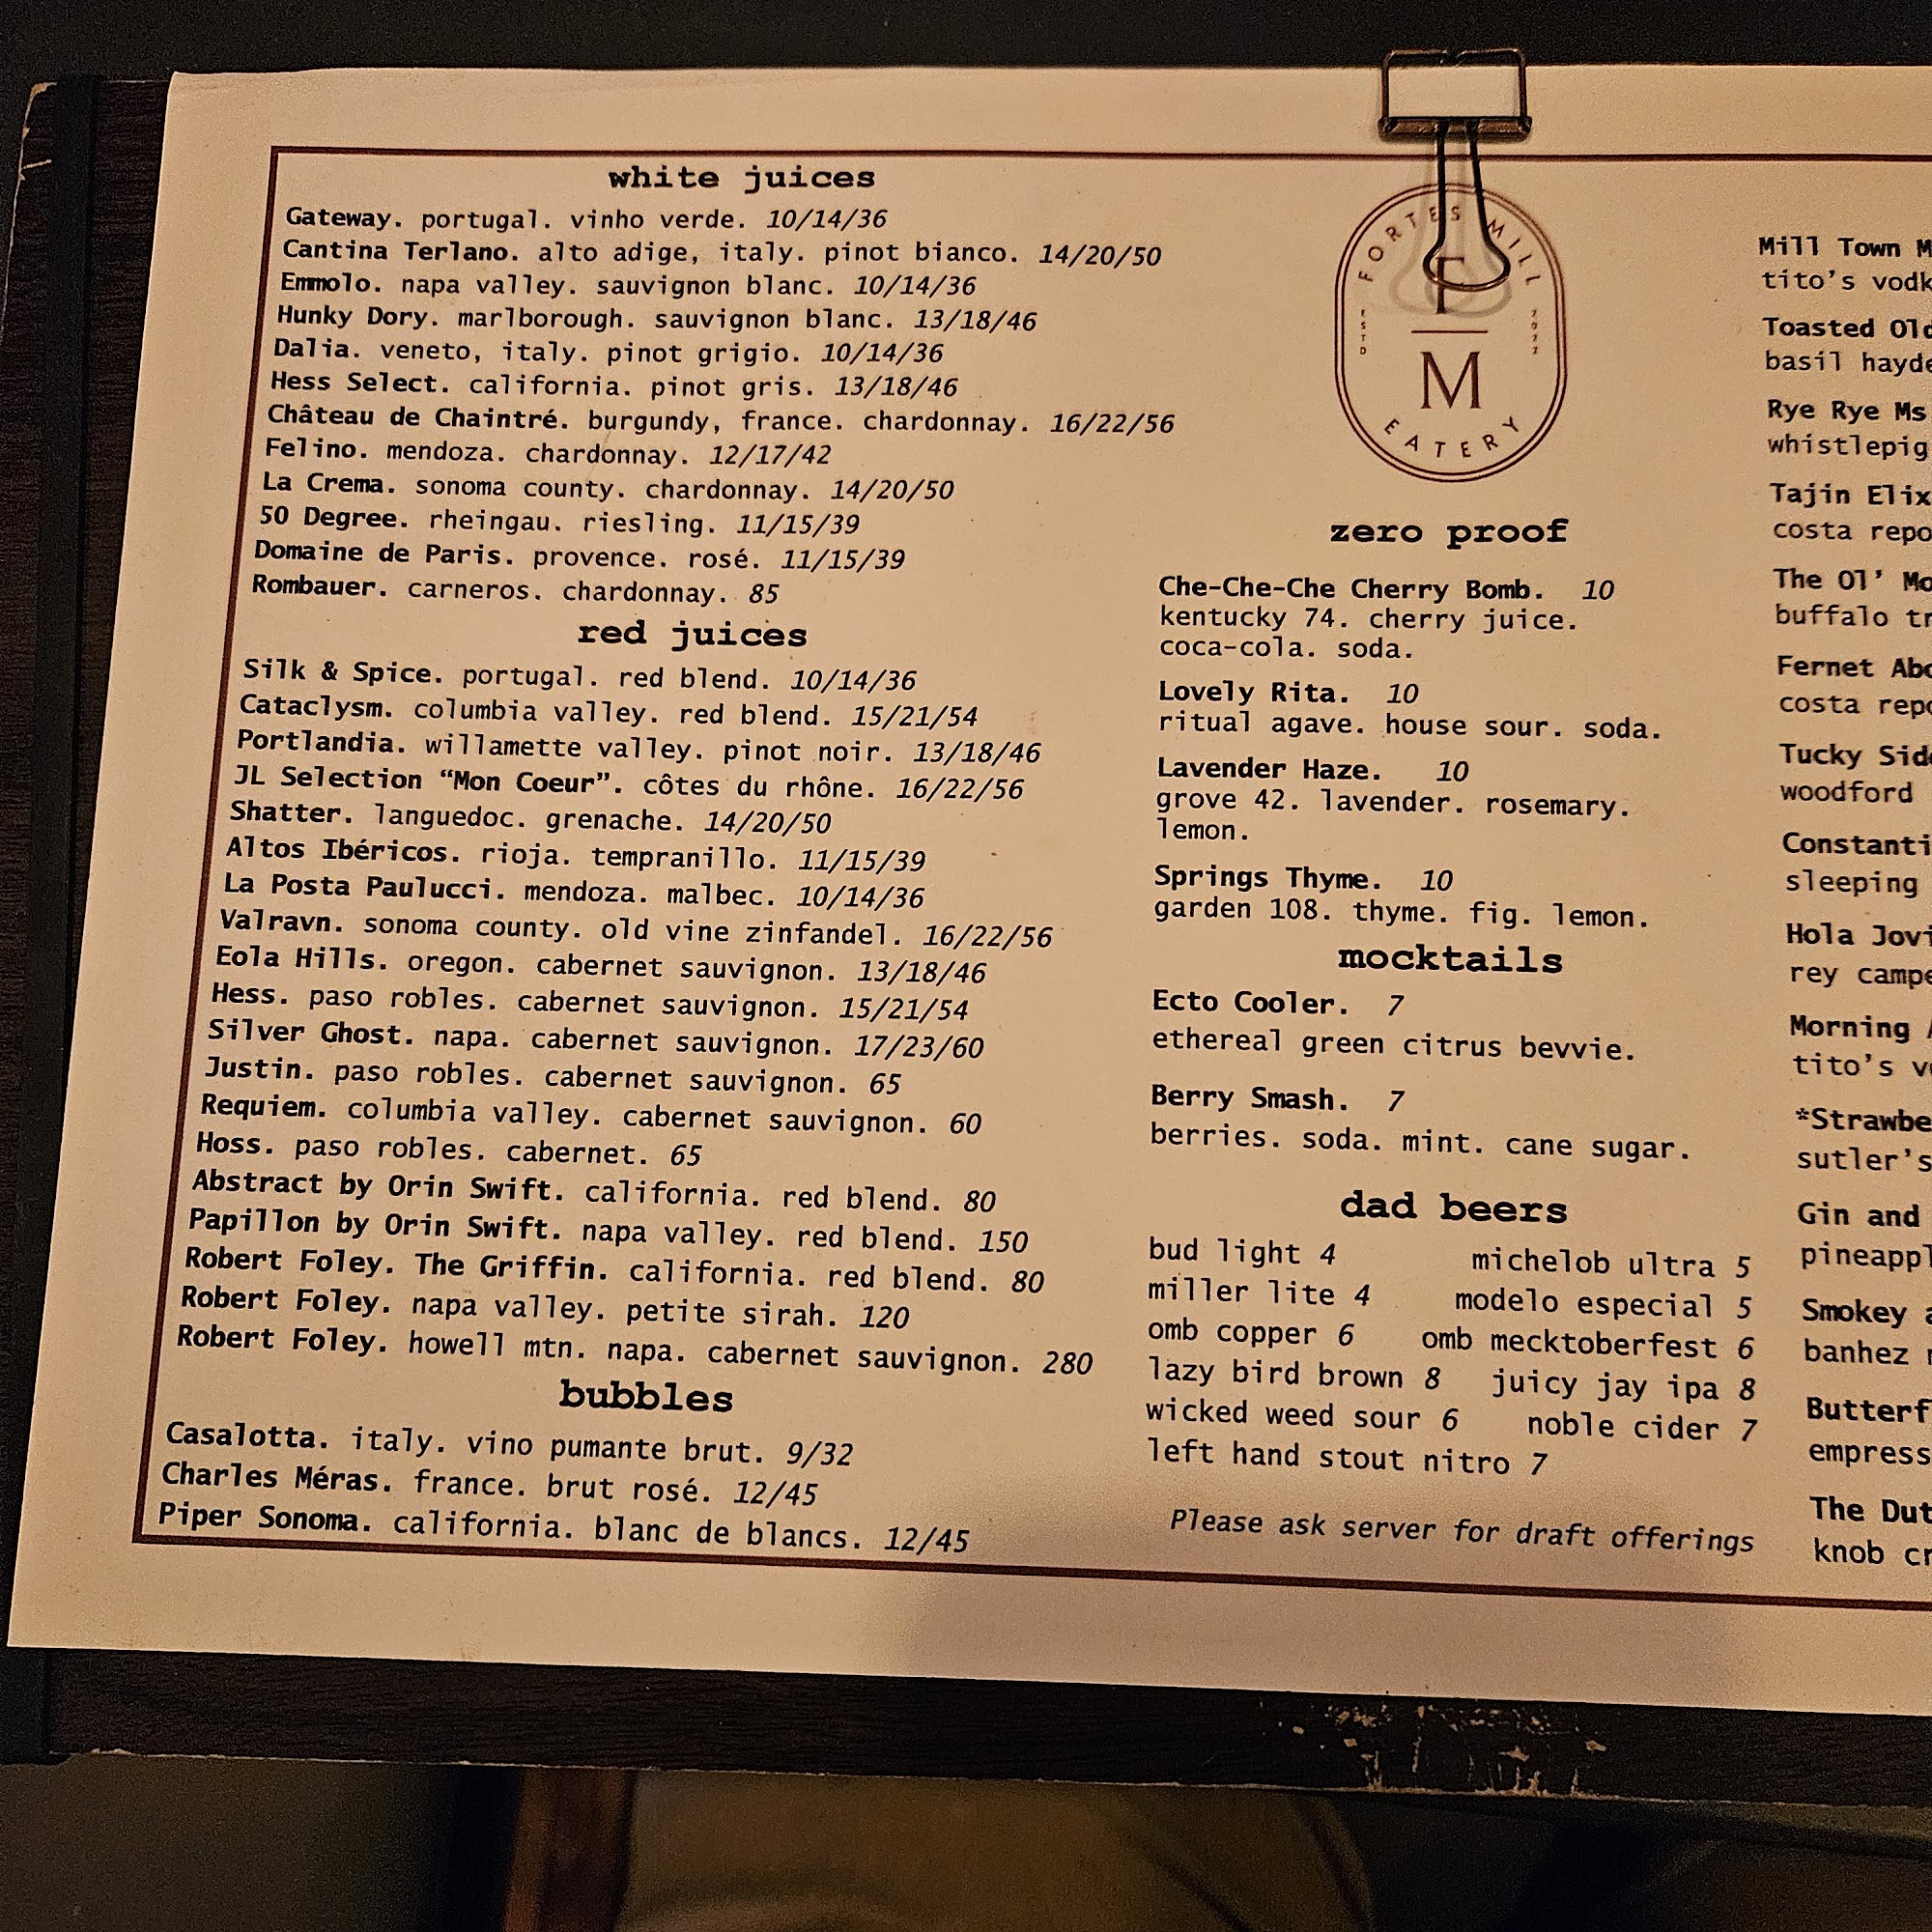 white juices
Gateway. portugal. vinho verde. 10/14/36
Cantina Terlano. alto adige, italy. pinot bianco. 14/20/50
Emmolo. napa valley. sauvignon blanc. 10/14/36
Hunky Dory. marlborough. sauvignon blanc. 13/18/46
Dalia. veneto, italy. pinot grigio. 10/14/36
Hess Select. california. pinot gris. 13/18/46
Château de Chaintré. burgundy, france. chardonnay. 16/22/56
Felino. mendoza. chardonnay. 12/17/42
La Crema. sonoma county. chardonnay. 14/20/50
50 Degree. rheingau. riesling. 11/15/39
Domaine de Paris. provence. rosé. 11/15/39
Rombauer. carneros. chardonnay. 85
red juices
Silk & Spice. portugal. red blend. 10/14/36
Cataclysm. columbia valley. red blend. 15/21/54
Portlandia. willamette valley. pinot noir. 13/18/46
JL Selection “Mon Coeur”. côtes du rhône. 16/22/56
Shatter. languedoc. grenache. 14/20/50
Altos Ibéricos. rioja. tempranillo. 11/15/39
La Posta Paulucci. mendoza. malbec. 10/14/36
Valravn. sonoma county. old vine zinfandel. 16/22/56
Eola Hills. oregon. cabernet sauvignon. 13/18/46
Hess. paso robles. cabernet sauvignon. 15/21/54
Silver Ghost. napa. cabernet sauvignon. 17/23/60
Justin. paso robles. cabernet sauvignon. 65
Requiem. columbia valley. cabernet sauvignon. 60
Hoss. paso robles. cabernet. 65
Abstract by Orin Swift. california. red blend. 80
Papillon by Orin Swift. napa valley. red blend. 150
Robert Foley. The Griffin. california. red blend. 80
Robert Foley. napa valley. petite sirah. 120
Robert Foley. howell mtn. napa. cabernet sauvignon. 280
bubbles
Casalotta. italy. vino pumante brut. 9/32
Charles Méras. france. brut rosé. 12/45
Piper Sonoma. california. blanc de blancs. 12/45
FORTES MILL
ESTD 2022
F
M
EATERY
zero proof
Che-Che-Che Cherry Bomb. 10
kentucky 74. cherry juice.
coca-cola. soda.
Lovely Rita. 10
ritual agave. house sour. soda.
Lavender Haze. 10
grove 42. lavender. rosemary.
lemon.
Springs Thyme. 10
garden 108. thyme. fig. lemon.
mocktails
Ecto Cooler. 7
ethereal green citrus bevvie.
Berry Smash. 7
berries. soda. mint. cane sugar.
dad beers
bud light 4 michelob ultra 5
miller lite 4 modelo especial 5
omb copper 6 omb mecktoberfest 6
lazy bird brown 8 juicy jay ipa 8
wicked weed sour 6 noble cider 7
left hand stout nitro 7
Please ask server for draft offerings
Mill Town
tito’s
Toasted
basil
Rye Rye Ms
whistlepig
Tajin
costa
The Ol’
buffalo
Fernet
costa
Tucky
woodford
sleeping
Hola
rey
Morning
tito’s
sutler’s
Gin and
Smokey
banhez
The
knob